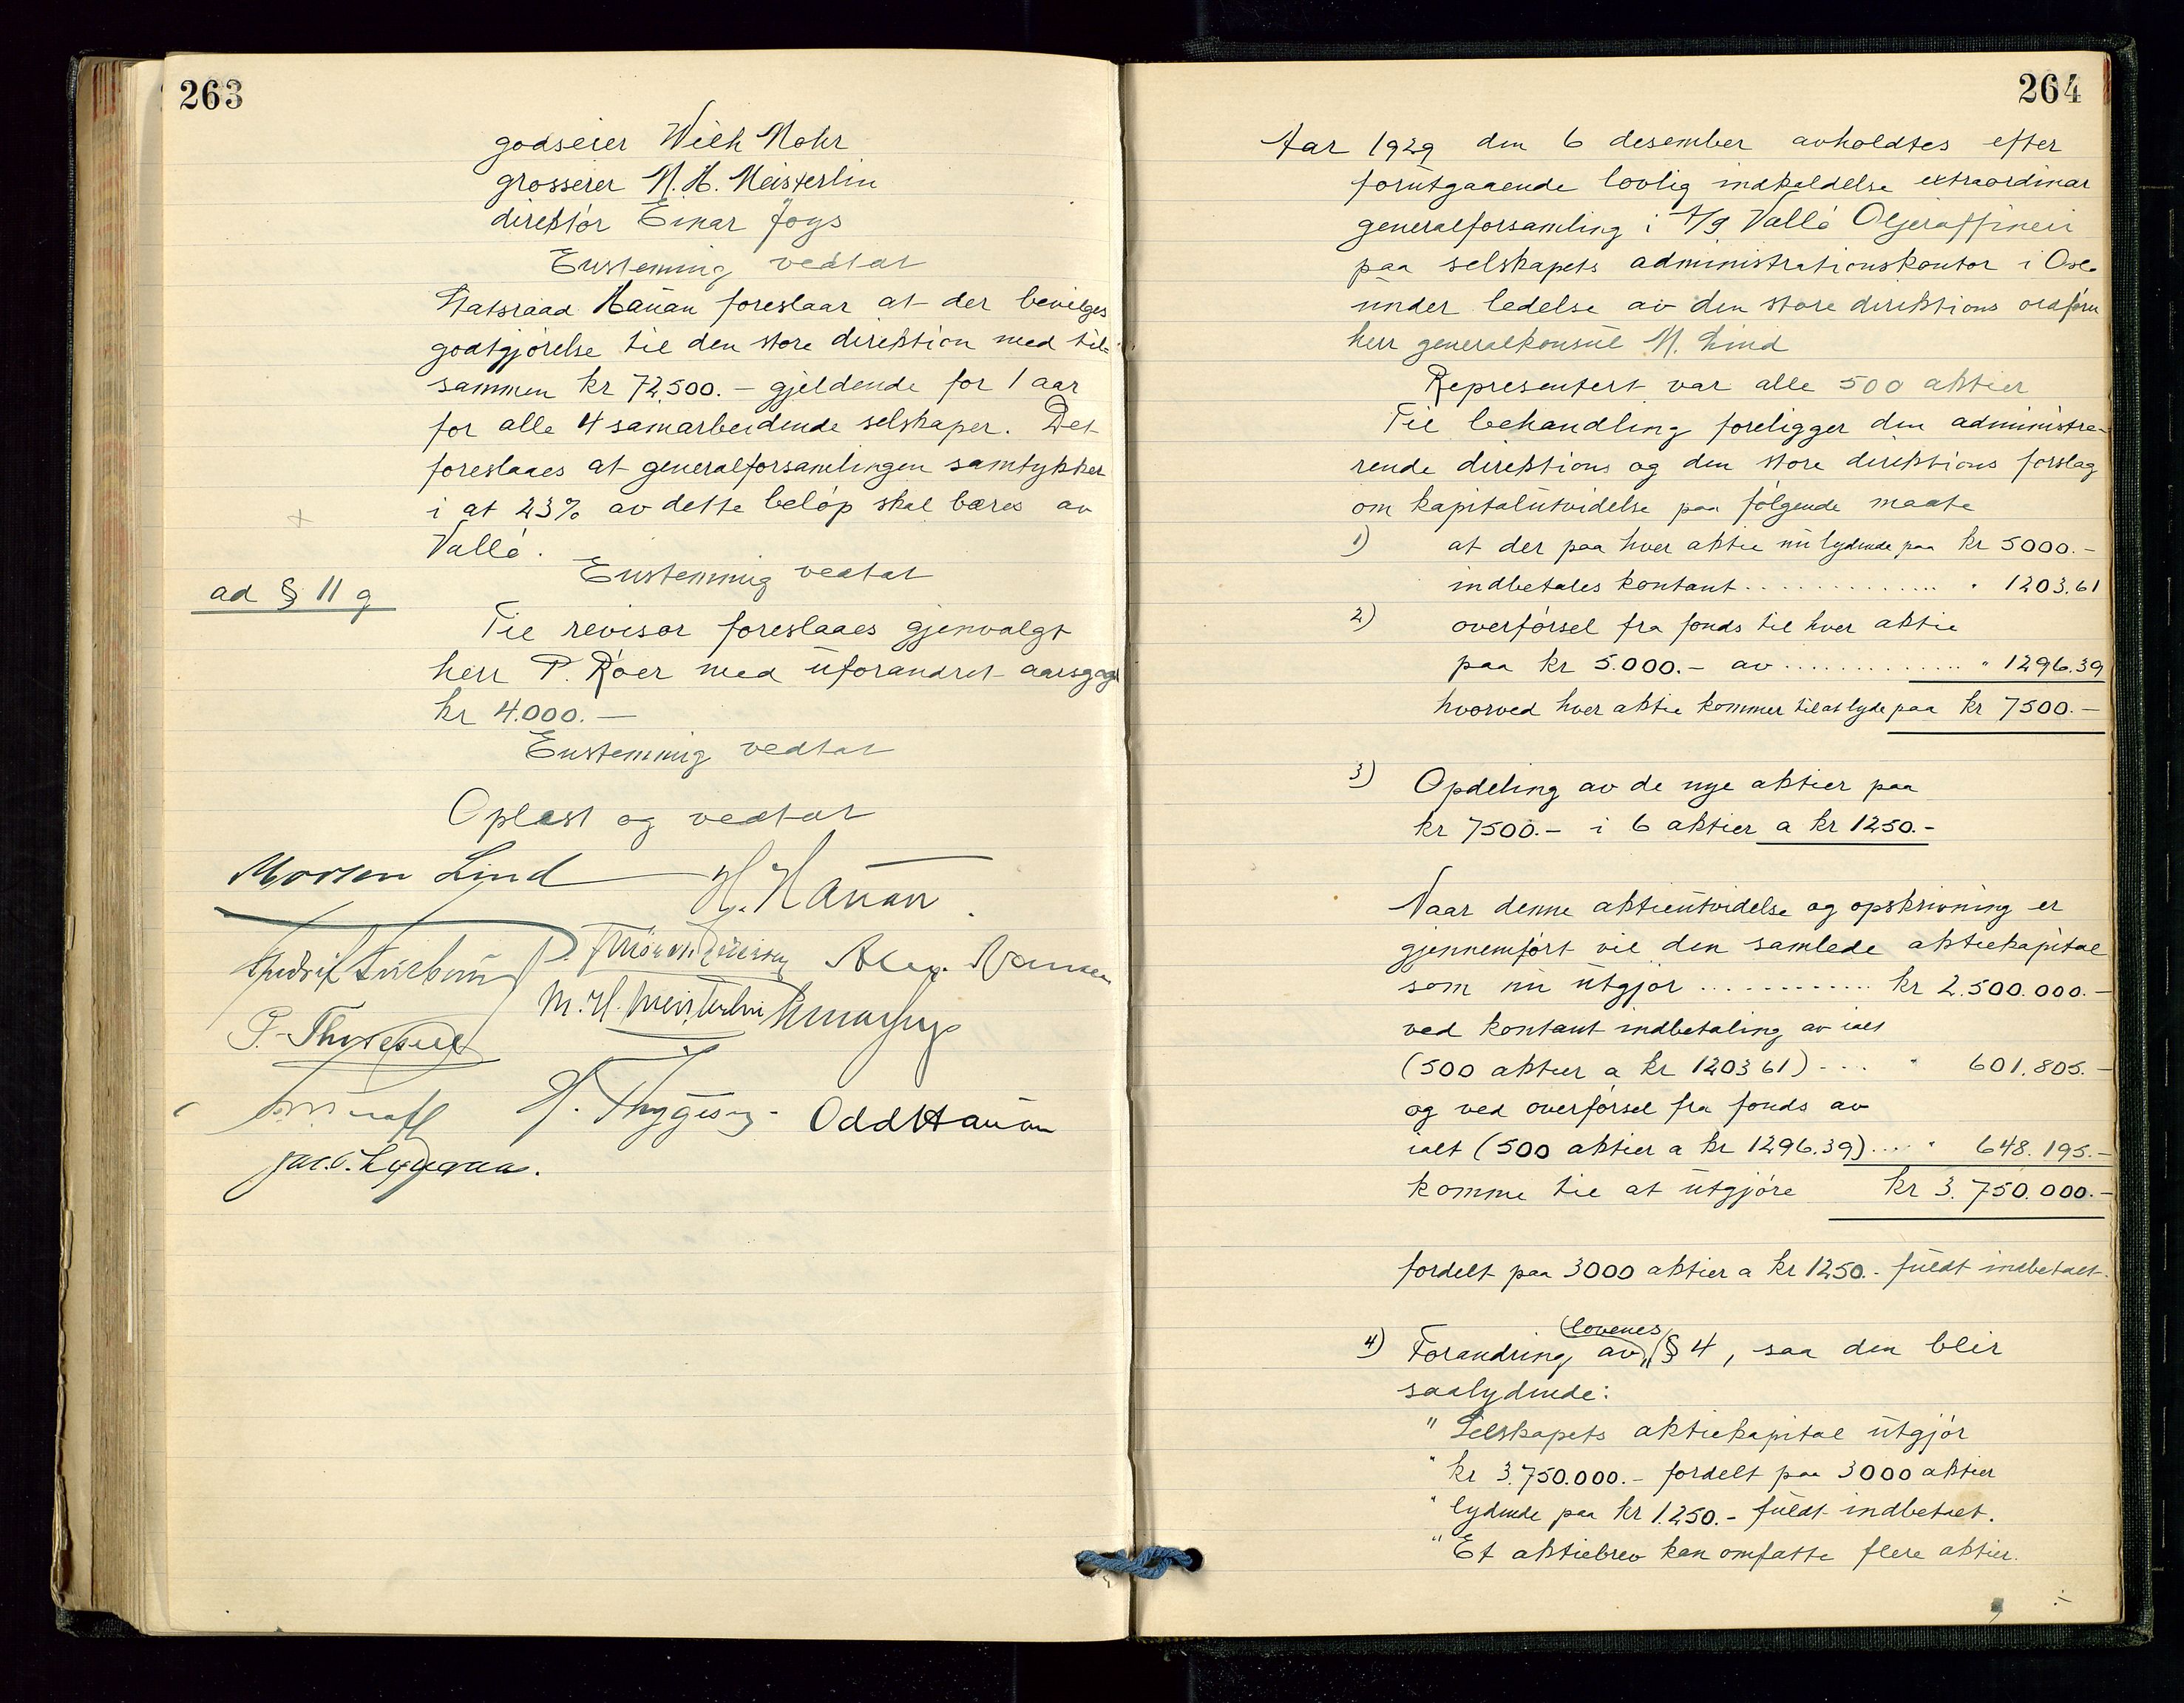 263
godseier Wilh Mohr
grosserer M. H. Meisterlin
direktör Einar Joys
Enstemmig vedtat
Statsraad Hauan foreslaar at der bevilges
godtgjörelse til den store direktion med til-
sammen kr 72.500.- gjeldende for 1 aar
for alle 4 samarbeidende selskaper. Det
foreslaaes at generalforsamlingen samtykker
i at 23% av dette belöp skal bæres av
Vallö.
Enstemmig vedtat
ad § 11 g
Til revisor foreslaaes gjenvalgt
herr P. Röer med uforandret aarsgage
kr 4.000.—
Enstemmig vedtat
Oplest og vedtat
Morten Lind H. Hauan.
M. H. Meisterlin
H. Thygesen Odd Hauan
264
Aar 1929 den 6 desember avholdtes efter
forutgaaende lovlig indkaldelse extraordinær
generalforsamling i A/S Vallö Oljeraffineri
paa selskapets administrationskontor i Oslo
under ledelse av den store direktions ordförer
herr generalkonsul M. Lind
Representert var alle 500 aktier
Til behandling foreligger den administre-
rende direktions og den store direktions forslag
om kapitalutvidelse paa fölgende maate
1) at der paa hver aktie nu lydende paa kr 5000.-
indbetales kontant .............. " 1203.61
2) overförsel fra fonds til hver aktie
paa kr 5.000.- av .............. " 1296.39
hvorved hver aktie kommer til at lyde paa kr 7500.-
3) Opdeling av de nye aktier paa
kr 7500.- i 6 aktier a kr 1250.-
Naar denne aktieutvidelse og opskrivning er
gjennemfört vil den samlede aktiekapital
som nu utgjör ............ kr 2.500.000.-
ved kontant indbetaling av ialt
(500 aktier a kr 1203 61) .... " 601.805.-
og ved overförsel fra fonds av
ialt (500 aktier a kr 1296.39) .... " 648.195.-
komme til at utgjöre kr 3.750.000.-
fordelt paa 3000 aktier a kr 1250.- fuldt indbetalt.
4) Forandring av lovenes § 4, saa den blir
saalydende:
" Selskapets aktiekapital utgjör
" kr 3.750.000.- fordelt paa 3000 aktier
" lydende paa kr 1.250.- fuldt indbetalt.
" Et aktiebrev kan omfatte flere aktier.